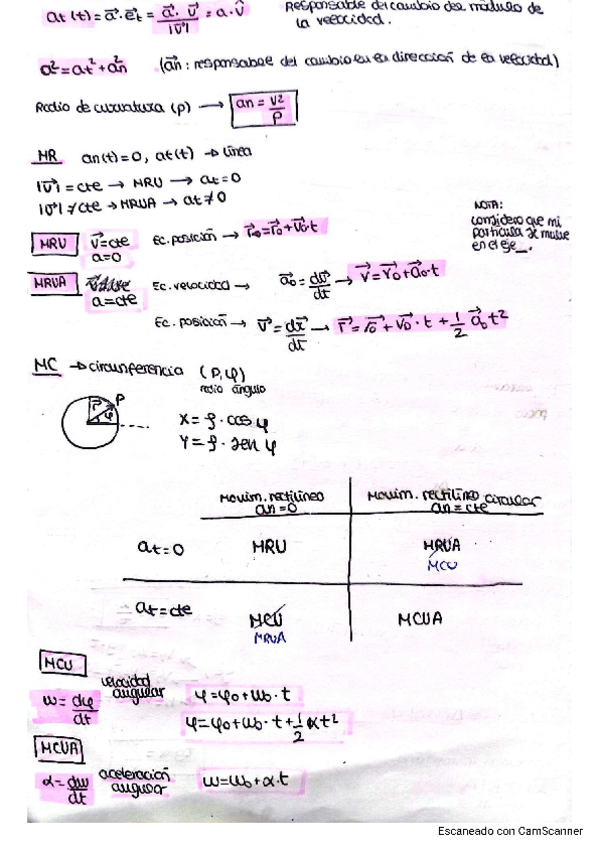 at(t) = a⃗·e⃗t = a⃗·v⃗/|v⃗| = a·v̂ Responsable del cambio del módulo de la velocidad.
a² = at² + an² (a⃗n: responsable del cambio en la dirección de la velocidad)
Radio de curvatura (ρ) → an = v²/ρ
MR an(t)=0, at(t) → línea
|v⃗| = cte → MRU → at=0
|v⃗| ≠ cte → MRUA → at≠0
NOTA:
considero que mi
partícula se mueve
en el eje _.
MRU v⃗=cte Ec. posición → r⃗=r⃗0+v⃗0·t
a=0
MRUA Ec. velocidad → a⃗0 = dv⃗/dt → v⃗=v⃗0+a⃗0·t
a=cte
Ec. posición → v⃗ = dr⃗/dt → r⃗=r⃗0+v⃗0·t+1/2 a⃗0t²
MC → circunferencia (ρ,φ)
radio ángulo
r P
φ
X = ρ·cos φ
Y = ρ·sen φ
Movim. rectilíneo Movim. rectilíno circular
an=0 an=cte
at=0 MRU MRUA
MCU
at=cte MCU MCUA
MRUA
MCU
ω = dφ/dt velocidad angular φ=φ0+ω0·t
φ=φ0+ω0·t+1/2 αt²
MCUA
α = dω/dt aceleración angular ω=ω0+α·t
Escaneado con CamScanner